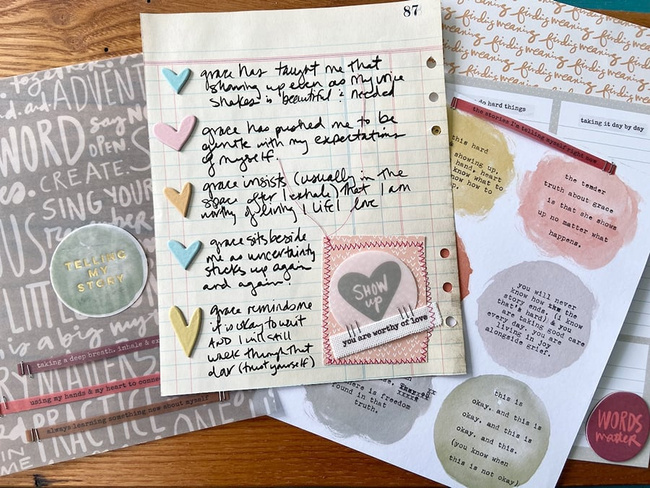 87
grace has taught me that
showing up even as my voice
shakes is beautiful & needed
grace has pushed me to be
gentle with my expectations
of myself.
grace insists (usually in the
space after I exhale) that I am
worthy of living a life I love
grace sits beside
me as uncertainty
sticks up again
and again.
grace reminds me
it is okay to wait
AND I will still
walk through that
day (trust yourself)
SHOW
up
you are worthy of love
ADVENT
WORD
OPEN.
CREATE
SING YOUR
TELLING
MY
STORY
taking a deep breath, inhale & ex
using my hands & my heart to connec
always learning something new about myself
PRACTICE
finding meaning
finding meaning
finding meaning
finding meaning
do hard things
taking it day by day
the stories I'm telling myself right now
this hard
showing up,
hand, heart
know what to
know how to
up.
the tender
truth about grace
is that she shows
up no matter what
happens.
you will never
know how the
story ends. (i know
that's hard) & you
are taking good care
every day. you are
living in joy
alongside grief.
there is freedom
found in that
truth.
this is
okay, and this is
okay, and this is
okay, and this.
(you know when
this is not okay)
WORDS
matter